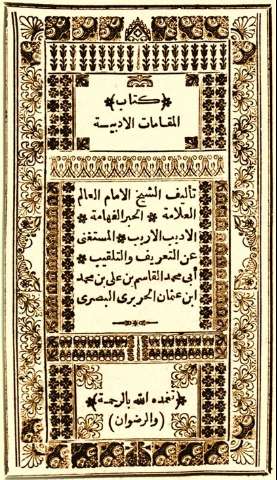 ﴿كتاب﴾
المقامات الادبية
تأليف الشيخ الامام العالم
العلامة * الحبر الفهامة *
الاديب الاريب * المستغنى
عن التعريف والتلقيب *
أبى محمد القاسم بن على بن محمد
ابن عثمان الحريرى البصرى
﴿تغمده الله بالرحمة﴾
(والرضوان)